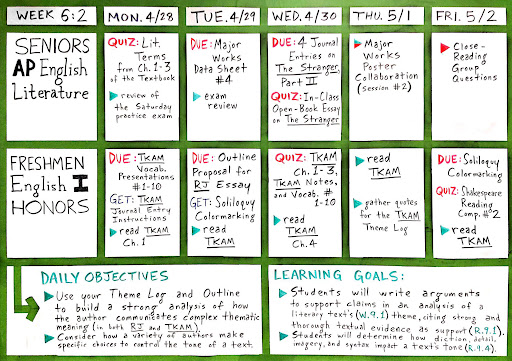 WEEK 6:2
MON. 4/28
TUE. 4/29
WED. 4/30
THU. 5/1
FRI. 5/2
SENIORS
AP English
&
Literature
QUIZ: Lit.
Terms
from Ch. 1-3
of the Textbook
review of
the Saturday
practice exam
DUE: Major
Works
Data Sheet
#4
exam
review
DUE: 4 Journal
Entries on
The Stranger,
Part II
QUIZ: In-Class
Open-Book Essay
on The Stranger
Major
Works
Poster
Collaboration
(Session #2)
Close-
Reading
Group
Questions
FRESHMEN
English I
HONORS
DUE: TKAM
Vocab.
Presentations
#1-10
GET: TKAM
Journal Entry
Instructions
read TKAM
Ch. 1
DUE: Outline
Proposal for
RJ Essay
GET: Soliloquy
Colormarking
read
TKAM
QUIZ: TKAM
Ch. 1-3,
TKAM Notes,
and Vocab. #
1-10
read
TKAM
Ch. 4
read
TKAM
gather quotes
for the TKAM
Theme Log
DUE: Soliloquy
Colormarking
QUIZ: Shakespeare
Reading
Comp. #2
read
TKAM
DAILY OBJECTIVES
Use your Theme Log and Outline
to build a strong analysis of how
the author communicates complex thematic
meaning (in both RJ and TKAM).
Consider how a variety of authors make
specific choices to control the tone of a text.
LEARNING GOALS:
Students will write arguments
to support claims in an analysis of a
literary text's (W.9.1) theme, citing strong and
thorough textual evidence as support (R.9.1).
Students will determine how diction, detail,
imagery, and syntax impact a text's tone (R.9.4).